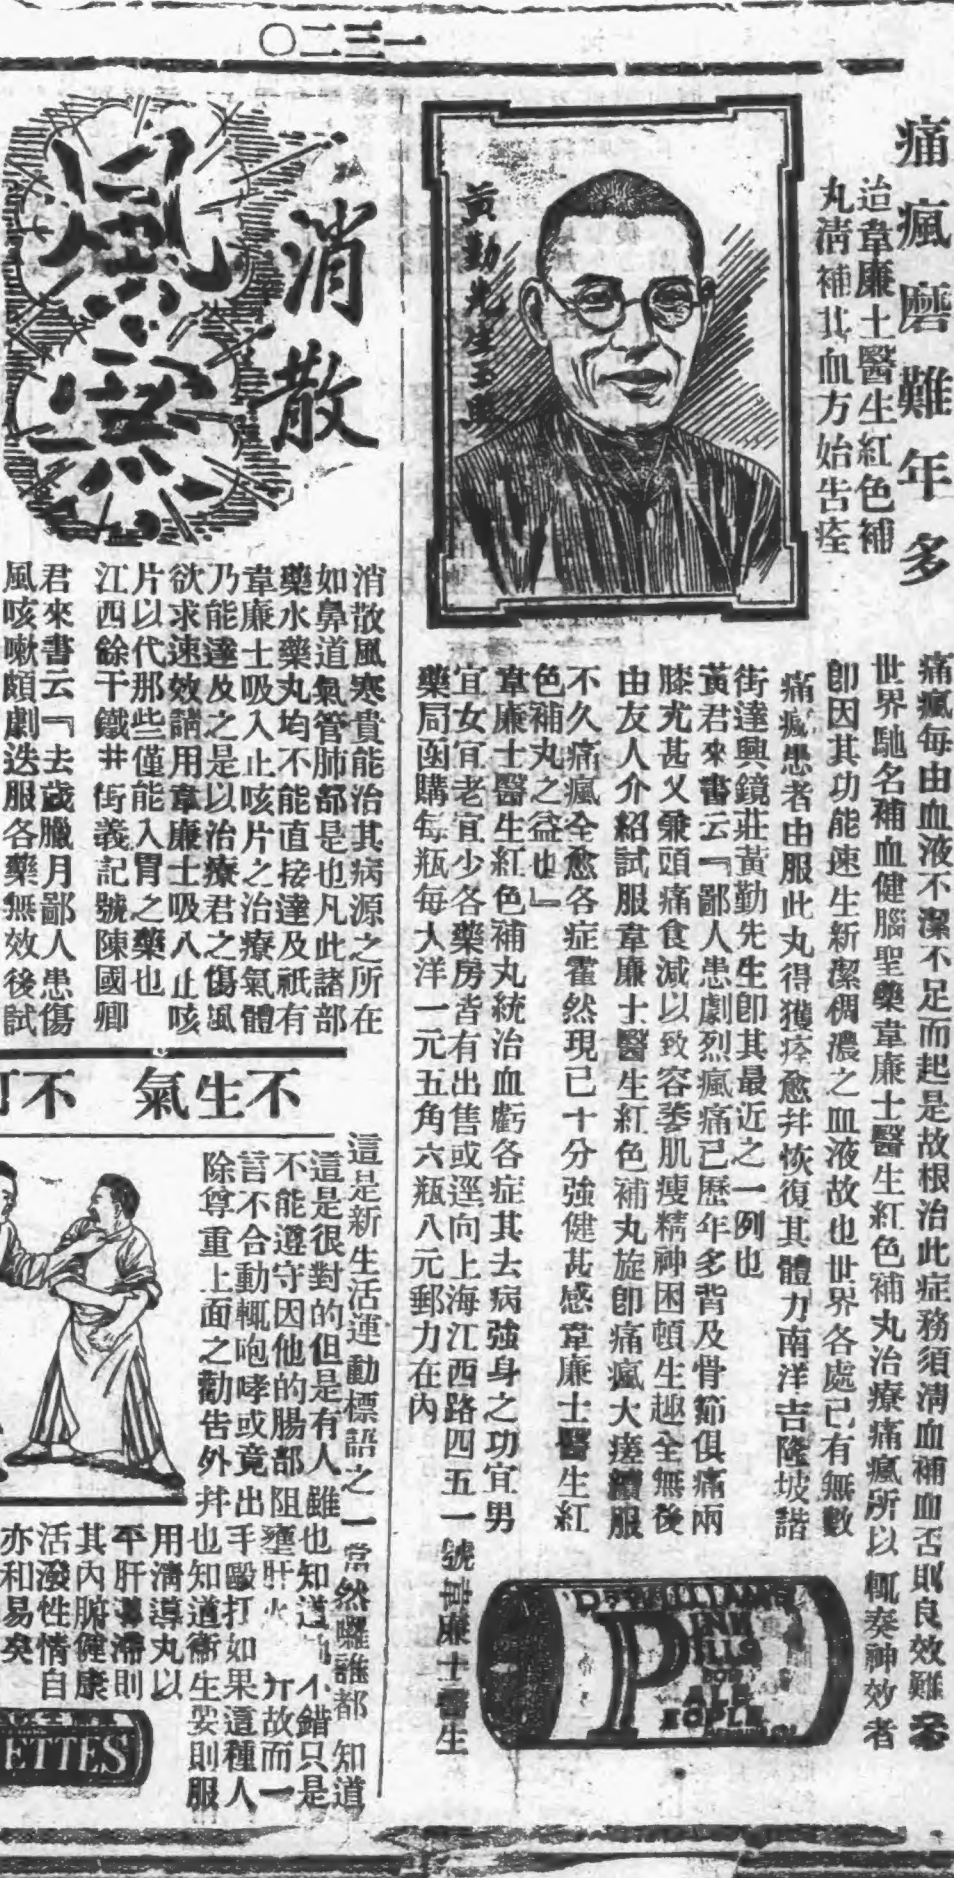 一三二〇
痛瘋磨難年多
治韋廉士醫生紅色補
丸清補其血方始告痊
黃勤先生玉照
痛瘋每由血液不潔不足而起是故根治此症務須淸血補血否則良效難
世界馳名補血健腦聖藥韋廉士醫生紅色補丸治療痛瘋所以輒奏神效者
卽因其功能速生新潔稠濃之血液故也世界各處已有無數
痛瘋患者由服此丸得獲痊愈幷恢復其體力南洋吉隆坡諧
街達興鏡莊黃勤先生卽其最近之一例也
黃君來書云『鄙人患劇烈瘋痛已歷年多背及骨節俱痛兩
膝尤甚又兼頭痛食減以致容萎肌瘦精神困頓生趣全無後
由友人介紹試服韋廉士醫生紅色補丸旋卽痛瘋大瘥續服
不久痛瘋全愈各症霍然現已十分強健甚感韋廉士醫生紅
色補丸之益也』
韋廉士醫生紅色補丸統治血虧各症其去病強身之功宜男
宜女宜老宜少各藥房皆有出售或逕向上海江西路四五一號韋廉士醫生
藥局函購每瓶大洋一元五角六瓶八元郵力在內
DR WILLIAMS
PINK
PILLS
FOR
PALE
PEOPLE
消散
風寒
消散風寒貴能治其病源之所在
如鼻道氣管肺部是也凡此諸部
藥水藥丸均不能直接達及祇有
韋廉士吸入止咳片之治療氣體
乃能達及之是以治療君之傷風
欲求速效請用韋廉士吸入止咳
片以代那些僅能入胃之藥也
江西餘干鐵井街義記號陳國卿
君來書云『去歲臘月鄙人患傷
風咳嗽頗劇迭服各藥無效後試
不生氣 不打
這是新生活運動標語之一當然囉誰都知道
這是很對的但是有人雖也知道 不錯只是
不能遵守因他的腸部阻壅肝火 升故而一
言不合動輒咆哮或竟出手毆打如果這種人
除尊重上面之勸告外幷也知道衞生妥則服
用淸導丸以
平肝 滯則
其內腑健康
活潑性情自
亦和易矣
ETTES